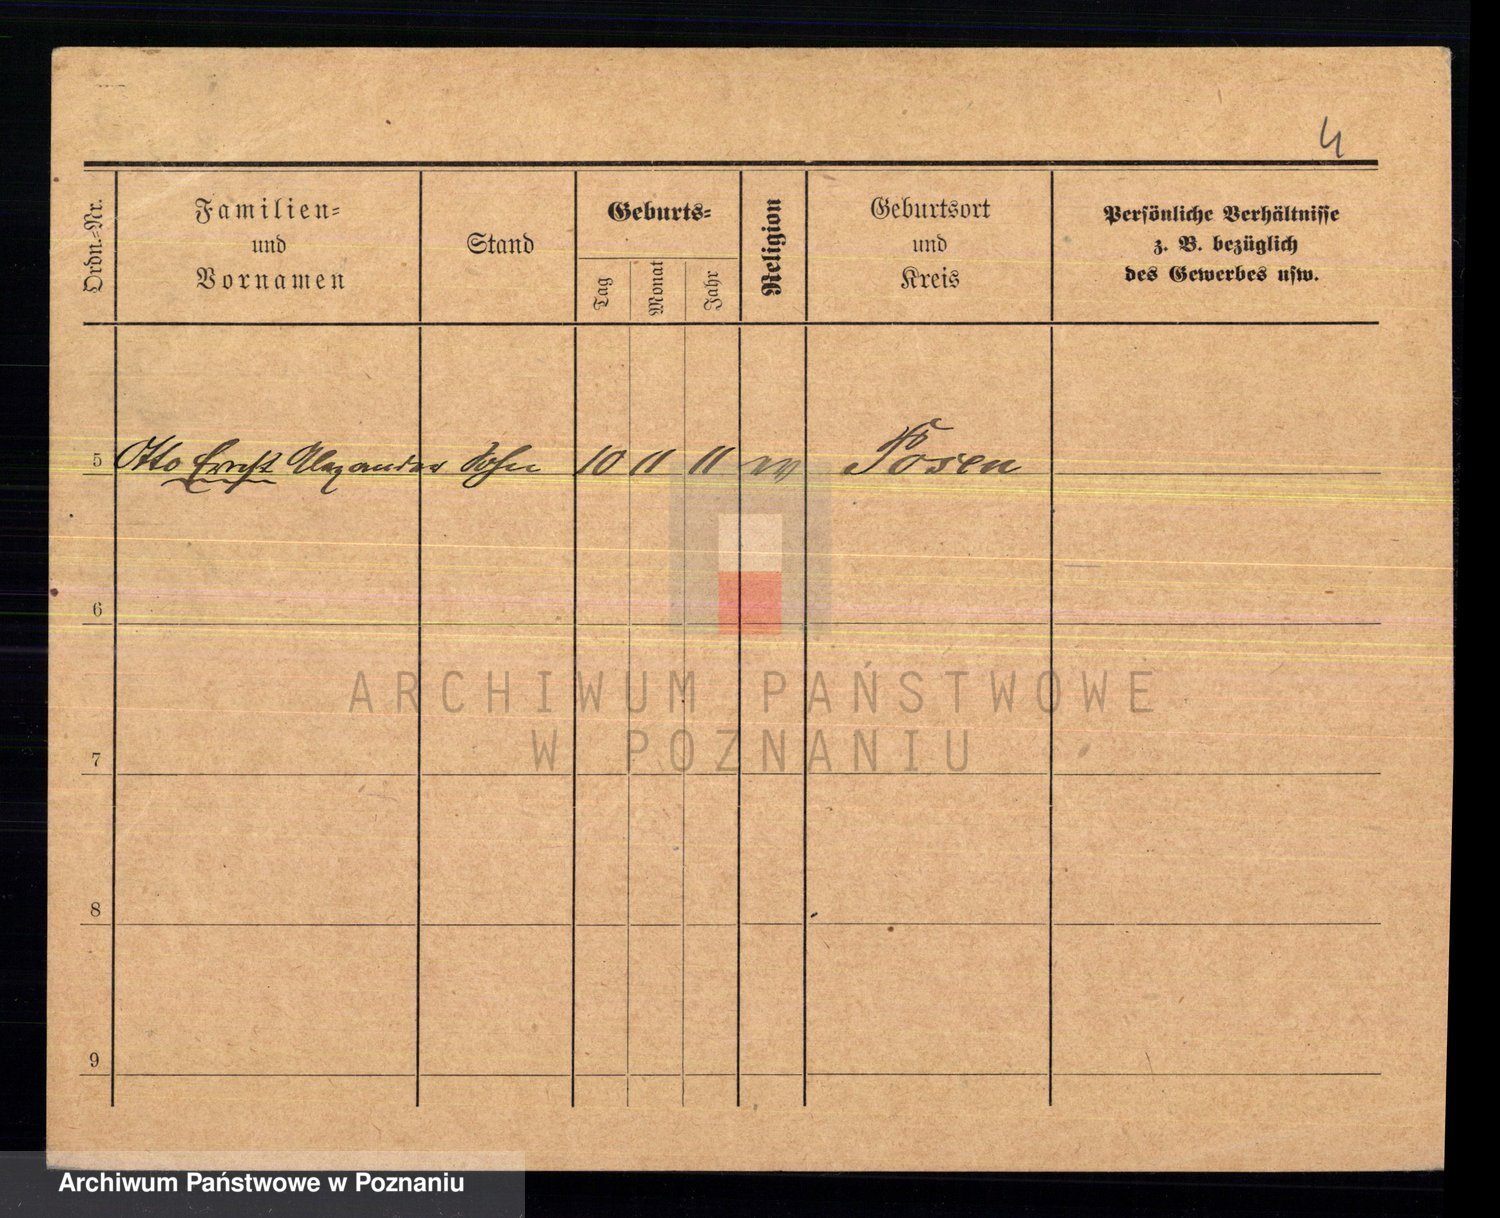 4
Ordn.-Nr.
Familien-
und
Vornamen
Stand
Geburts-
Tag
Monat
Jahr
Religion
Geburtsort
und
Kreis
Persönliche Verhältnisse
z. B. bezüglich
des Gewerbes usw.
5 Otto Ernst Alexander Sohn 10 11 11 ev Posen
6
7
8
9
ARCHIWUM PAŃSTWOWE
W POZNANIU
Archiwum Państwowe w Poznaniu